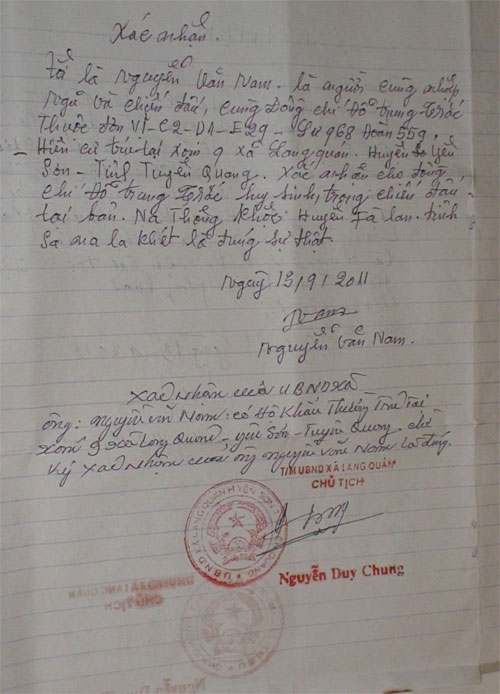 Xác nhận.
Tôi là Nguyễn Văn Nam. là người cùng nhập
ngũ và chiến đấu, cùng đồng chí Đỗ trung trắc
Thuộc đơn vị - C2-D1-E29 - Sư 968 Đoàn 559.
- Hiện cư trú tại xóm 9 xã Lang quán - Huyện Yên
Sơn - Tỉnh Tuyên Quang. Xác nhận cho đồng
chí Đỗ trung trắc hy sinh, trong chiến đấu
tại bản. Na Thộng Huyện Fa lan. tỉnh
Sa na là đúng sự thật
Ngày 13/9/2011
Nguyễn Văn Nam.
Xác nhận của UBND xã
ông: nguyễn văn Nam: có Hộ Khẩu Thường Trú Tại
xóm 9 xã Lang Quán - yên Sơn - Tuyên Quang. chữ
ký xác nhận của ông nguyễn văn Nam là đúng.
T/M UBND XÃ LANG QUÁN
CHỦ TỊCH
Nguyễn Duy Chung
T/M UBND XÃ LANG QUÁN
CHỦ TỊCH